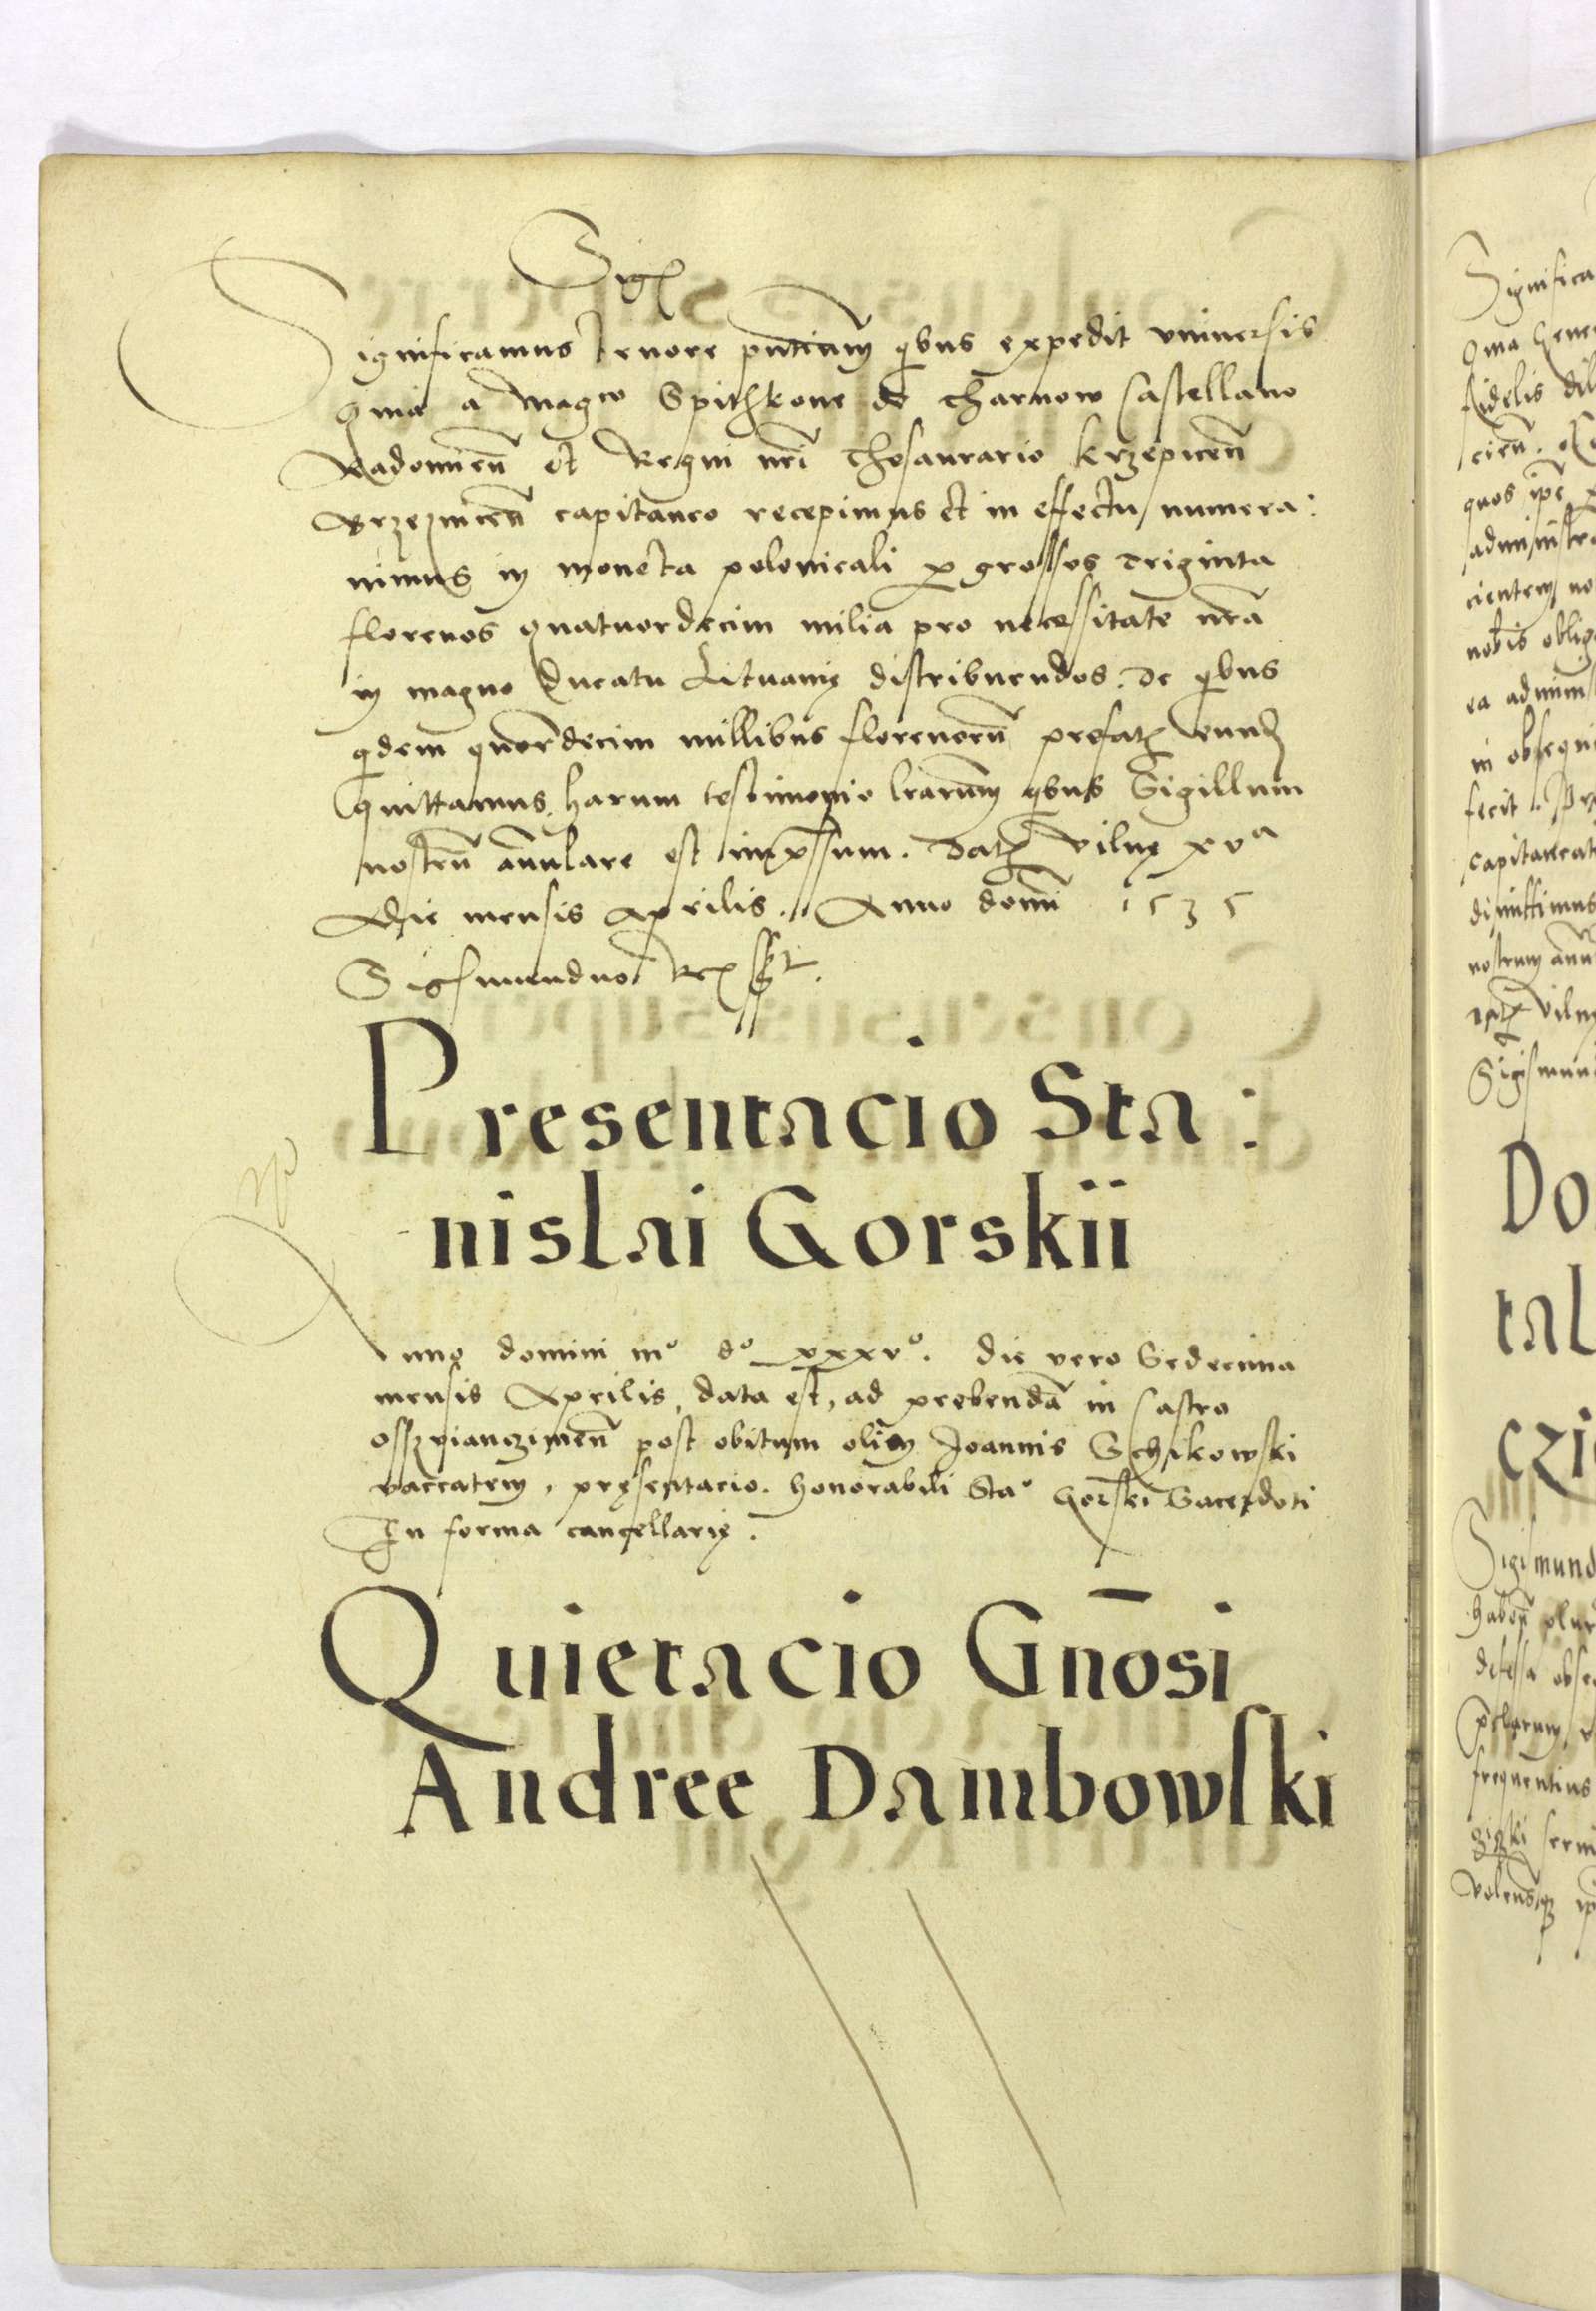 Sig
Significamus tenore pñtium qibus expedit vniuersis
Quia a Magco Spithkone de Tharnow Castellano
Radomieñ et Regni nri Thesaurario Krzepiceñ
Brzezniceñ capitaneo recepimus et in effectu numera:
uimus in moneta polonicali per grossos triginta
florenos quatuordecim milia pro necessitate nrã
in magno Ducatu Lituanię distribuendos. de qibus
qidem quatuordecim millibus florenorũ prefatum eundem
quittamus, harum testimonio lrarum qibus Sigillum
nostrũ añulare est impressum. Datum Vilnę xva
Die mensis Aprilis. Anno domi 1535
Sigismundus Rex sst.
Presentacio Sta:
nislai Gorskii
Anno domini mo do xxxvo. die vero Sedecima
mensis Aprilis, data est, ad prebendã in Castro
post obitum olim Joannis
vaccatem, pręsentacio. honorabili Stao Gorski Sacerdoti
In forma cancellarię.
Quietacio Gñosi
Andree Dambowski
Significa
Qma Gener
fidelis dil
quos ipe
administra
cientem no
nobis oblig
ea admini
in obsequi
fecit
capitaneat
dimittimus
nostrum annu
Vilnę
Sigismun
Do
tal
czi
Sigismund
habeñ plur
defessa obse
frequentius
serui